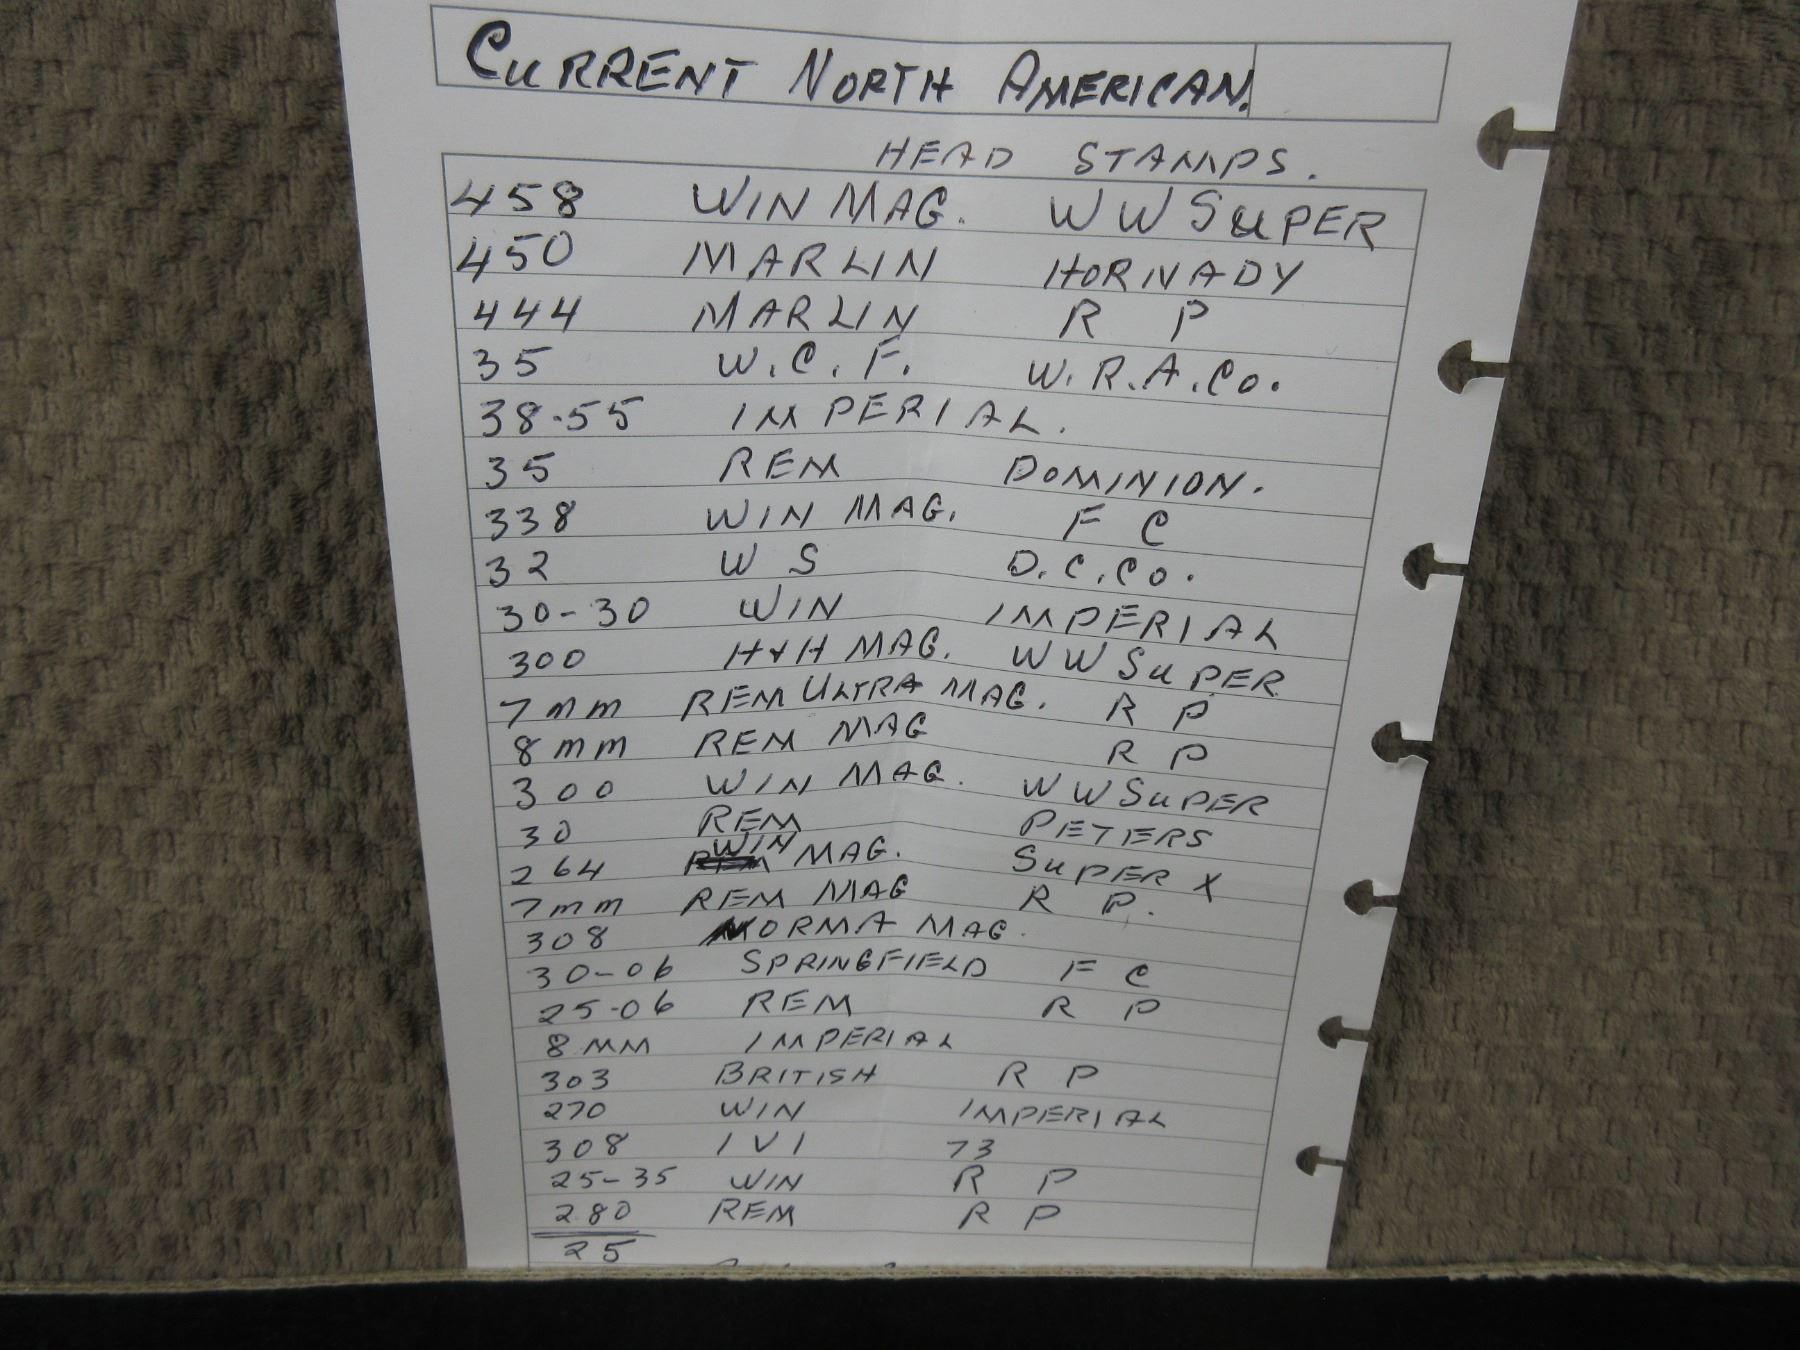 CURRENT NORTH AMERICAN.
HEAD STAMPS.
458 WIN MAG. WW SUPER
450 MARLIN HORNADY
444 MARLIN R P
35 W.C.F. W.R.A.Co.
38-55 IMPERIAL.
35 REM DOMINION.
338 WIN MAG. F C
32 W S D.C.Co.
30-30 WIN IMPERIAL
300 H&H MAG. WW SUPER
7mm REM ULTRA MAG. R P
8mm REM MAG R P
300 WIN MAG. WW SUPER
30 REM PETERS
264 WIN MAG. SUPER X
7mm REM MAG R P.
308 NORMA MAG.
30-06 SPRINGFIELD F C
25-06 REM R P
8MM IMPERIAL
303 BRITISH R P
270 WIN IMPERIAL
308 IVI 73
25-35 WIN R P
280 REM R P
25